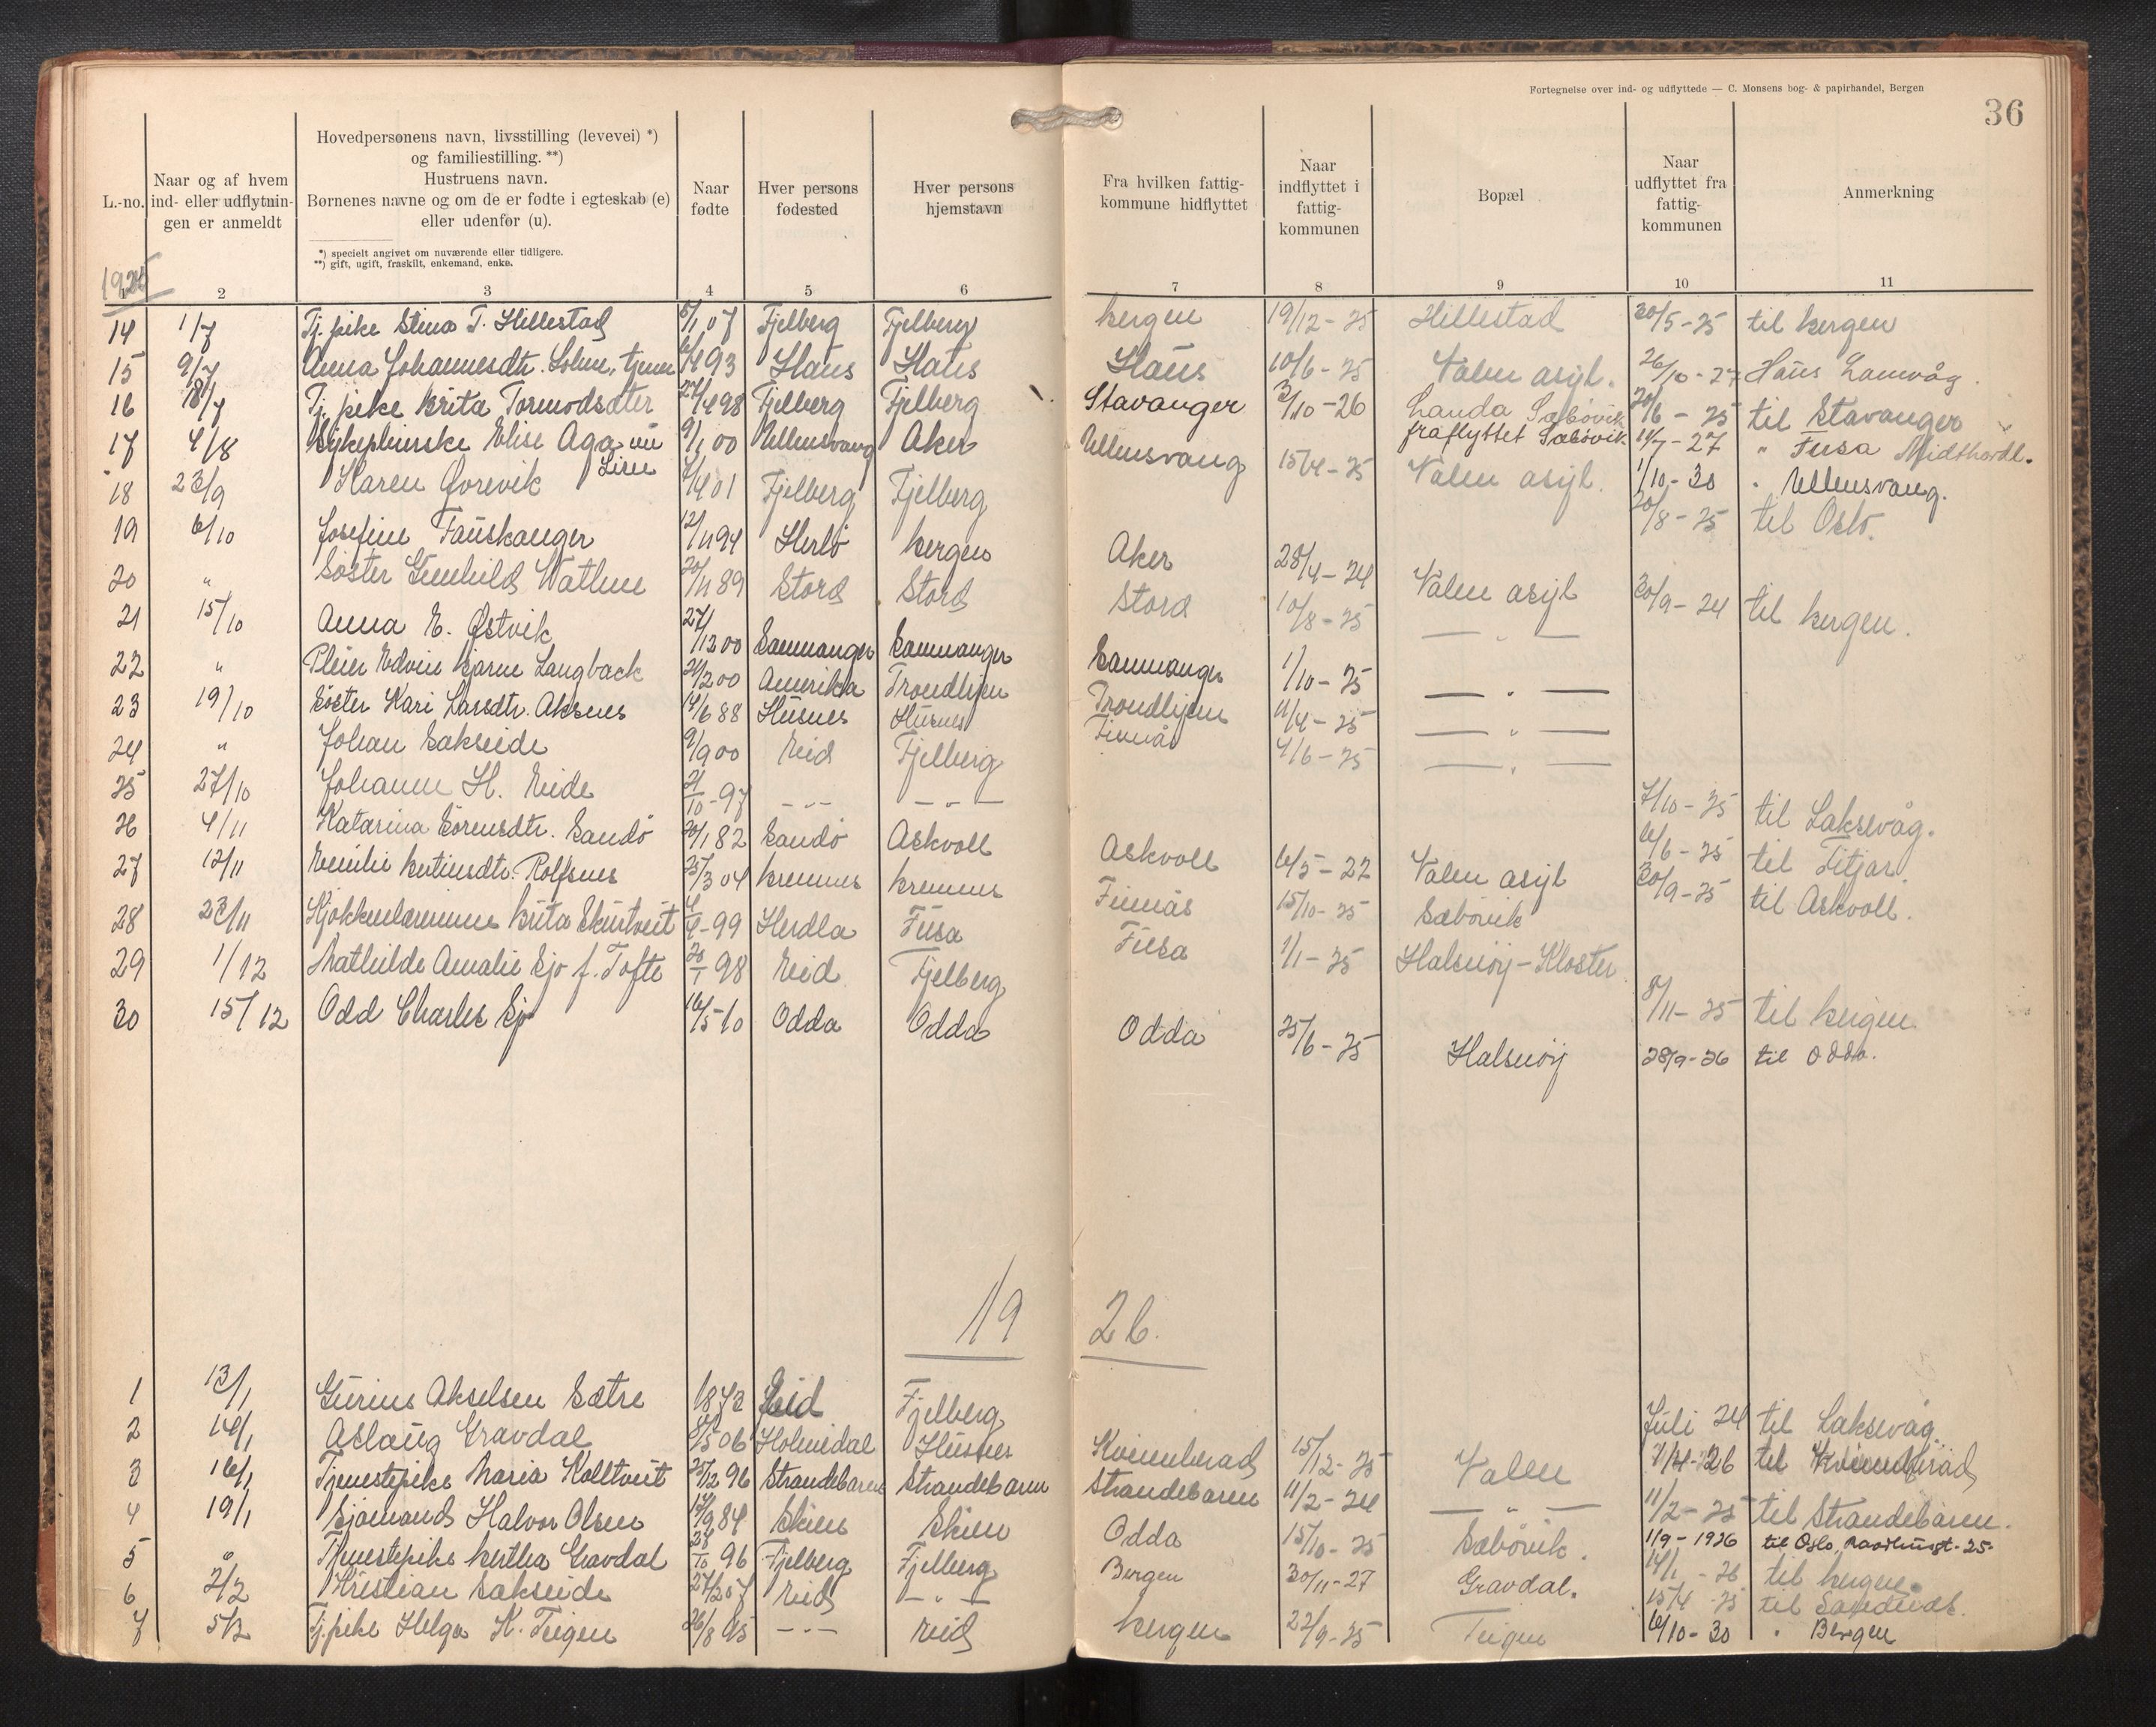 Fortegnelse over ind- og udflyttede — C. Monsens bog- & papirhandel, Bergen
36
L.-no.
Naar og af hvem ind- eller udflytnin-gen er anmeldt
Hovedpersonens navn, livsstilling (levevei) *)
og familiestilling. **)
Hustruens navn.
Børnenes navne og om de er fødte i egteskab (e)
eller udenfor (u).
*) specielt angivet om nuværende eller tidligere.
**) gift, ugift, fraskilt, enkemand, enke.
Naar fødte
Hver persons fødested
Hver persons hjemstavn
Fra hvilken fattig-kommune hidflyttet
Naar indflyttet i fattig-kommunen
Bopæl
Naar udflyttet fra fattig-kommunen
Anmerkning
1925
2 3 4 5 6 7 8 9 10 11
14 1/7 Tj. pike Stina T. Hillestad 07 Fjelberg Fjelberg Bergen 19/12-25 Hillestad 20/5-25 til Bergen
15 9/7 Anna Johannesdtr. 93 Haus Haus Haus 10/6-25 Valen asyl. 26/10-27 Haus
16 18/7 Tj. pike Brita Tormodsdter 98 Fjelberg Fjelberg Stavanger 3/10-26 Landa Sæbövik 20/6-25 til Stavanger
fraflyttet Sæbövik 10/7-27 " Fusa Midthordl.
17 4/8 Sykepleierske Elise Aga 9/1 00 Ullensvang Aker Ullensvang 15/4-25 Valen asyl. 1/10-30 " Ullensvang.
18 23/9 Karen Qvrevik 01 Fjelberg Fjelberg 20/8-25 til Oslo.
19 6/10 Josefine Fauskanger 12/11 94 Herlö Bergen Aker 28/4-24 Valen asyl 30/9-24 til Bergen.
20 " Söster Gunhild Wathne 20/11 89 Stord Stord Stord 10/8-25 — " —
21 15/10 Anna E. Østvik 27/12 00 Samnanger Samnanger Samnanger 1/10-25 — " —
22 " Pleier Edvin Bjarne Langback 00 Amerika Trondhjem Trondhjem 11/4-25 — " —
23 19/10 Söster Kari Larsdtr. Aksnes 14/6 88 Husnes Husnes Finnås 4/6-25 — " —
24 " Johan Sakseide 9/9 00 Eid Fjelberg 7/10-25 til Laksevåg.
25 27/10 Johanne H. Eide 21/10-97 — " — — " — 6/6-25 til Fitjar.
26 4/11 Katarina Sörensdtr. Sandö 20/1 82 Sandö Askvoll Askvoll 6/5-22 Valen asyl 30/9-25 til Askvoll.
27 12/11 Emilie Bertinsdtr. Rolfsnes 25/3 04 Bremnes Bremnes Finnås 15/10-25 Sæbövik
28 23/11 Brita 99 Herdla Fusa Fusa 1/1-25 Halsnöy-Kloster
29 1/12 Mathilde Amalie Sjo f. Tofte 20/1 98 Eid Fjelberg 8/11-25 til Bergen
30 15/12 Odd Charles Sjo 16/5-10 Odda Odda Odda 25/6-25 Halsnöy 28/9-26 til Odda.
19 26.
1 13/1 Gurius Akselsen Sætre 1873 Eid Fjelberg Juli 24 til Laksevåg
2 14/1 Aslaug Gravdal 06 Holmedal Husnes Kvinnherad 15/12-25 Valen til Kvinnherad
3 16/1 Tjenestepike Maria Kolltveit 25/12 96 Strandebarm Strandebarm Strandebarm 11/2-24 — " — 11/2-25 til Strandebarm.
4 19/1 Sjömand Halvor Olsen 84 Skien Skien Odda 15/10-25 Sæbövik. 1/9-1926 til Oslo
5 " Tjenestepike Bertha Gravdal 28/10 96 Fjelberg Fjelberg Bergen 30/11-27 Gravdal. 14/1-26 til Bergen.
6 2/2 Kristian Sakseide 27/2 07 Eid — " — 15/4 25 til
7 5/2 Tj. pike Helga K. Teigen 26/8 95 — " — Eid Bergen 22/9-25 Teigen 6/10-30 " Bergen